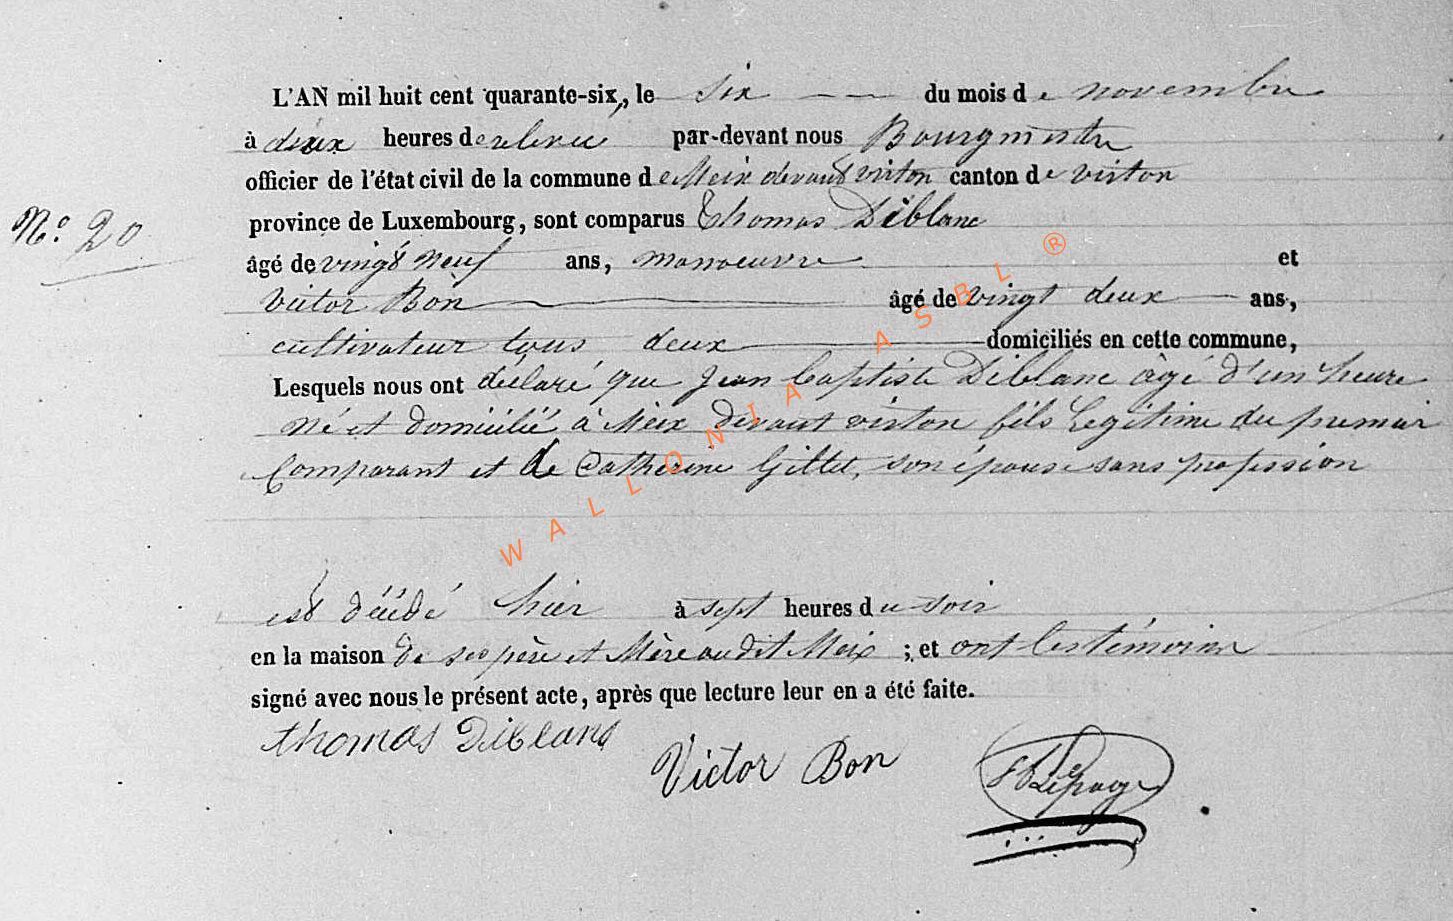 L'AN mil huit cent quarante-six, le six du mois de novembre
à deux heures de relevée par-devant nous Bourgmestre
officier de l'état civil de la commune de Meix devant virton canton de virton
N.° 20
province de Luxembourg, sont comparus Thomas Diblanc
âgé de vingt neuf ans, manoeuvre et
victor Bon âgé de vingt deux ans,
cultivateur tous deux domiciliés en cette commune,
Lesquels nous ont déclaré que Jean baptiste Diblanc âgé d'un heure
né et domicilié à Meix devant virton fils Legitime du premier
Comparant et de Catherine Gillet, son épouse sans profession
est décédé hier à sept heures du soir
en la maison de ses père et Mère audit Meix ; et ont les témoins
signé avec nous le présent acte, après que lecture leur en a été faite.
thomas Diblanc
Victor Bon
Lepage
WALLONIA ASBL ®